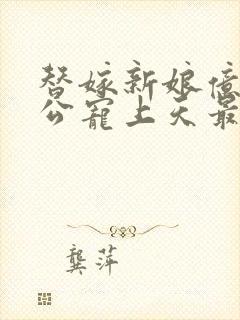 替嫁新娘億
公寵上天最
龔萍